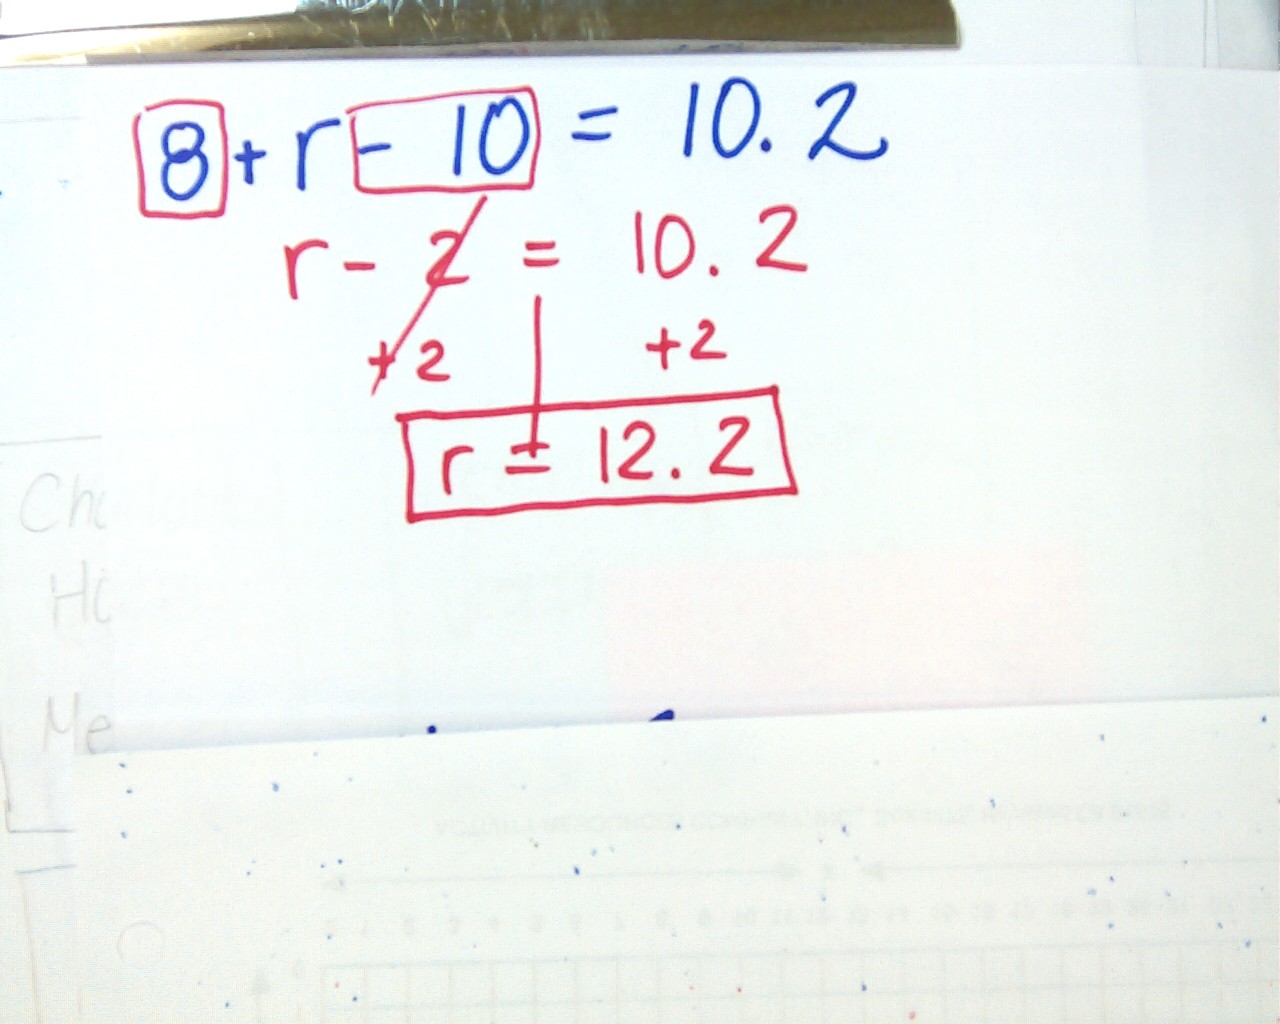 8 + r - 10 = 10.2
r - 2 = 10.2
+2 +2
r = 12.2
Me